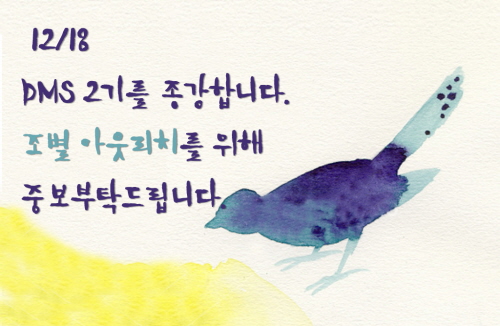 12/18
DMS 2기를 종강합니다.
조별 아웃리치를 위해
중보부탁드립니다